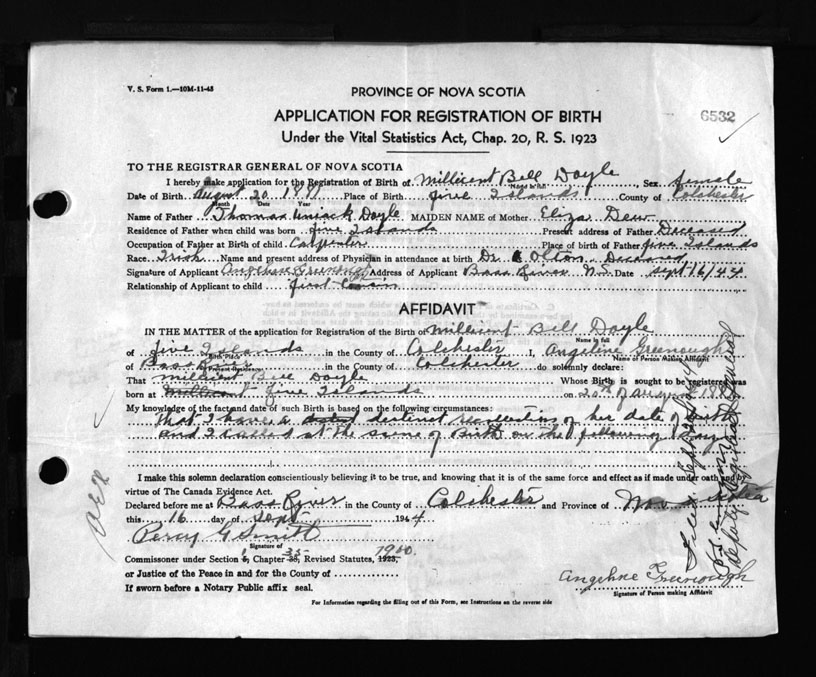 V. S. Form 1.—10M-11-43
PROVINCE OF NOVA SCOTIA
APPLICATION FOR REGISTRATION OF BIRTH
6532
Under the Vital Statistics Act, Chap. 20, R. S. 1923
TO THE REGISTRAR GENERAL OF NOVA SCOTIA
I hereby make application for the Registration of Birth of Millicent Bell Doyle, Sex female
Name in full
Date of Birth August 20 Place of Birth five Islands County of Colchester
Month Date Year
Name of Father Thomas Uniack Doyle MAIDEN NAME of Mother Eliza Dew
Residence of Father when child was born five Islands Present address of Father Deceased
Occupation of Father at Birth of child Carpenter Place of birth of Father five Islands
Race Irish Name and present address of Physician in attendance at birth Dr. Olton Deceased
Signature of Applicant Angeline Greenough Address of Applicant Bass River N.S. Date Sept 16/44
Relationship of Applicant to child first cousin
AFFIDAVIT
IN THE MATTER of the application for Registration of the Birth of Millicent Bell Doyle
Name in full
of five Islands in the County of Colchester I, Angeline Greenough
Birth Place Name of Person Making Affidavit
of Bass River in the County of Colchester do solemnly declare:
Present Residence
That Millicent Bell Doyle Whose Birth is sought to be registered was
born at Millicent five Islands on 20th of August
My knowledge of the fact and date of such Birth is based on the following circumstances:
That I have a distinct recollection of her date of Birth
and I called at the time of Birth on the following Day
I make this solemn declaration conscientiously believing it to be true, and knowing that it is of the same force and effect as if made under oath and by
virtue of The Canada Evidence Act.
Declared before me at Bass River in the County of Colchester and Province of Nova Scotia
this 16 day of Sept 1944
Percy G Smith
Signature of
Commissioner under Section Chapter 35, Revised Statutes, 1923, 1900
or Justice of the Peace in and for the County of
If sworn before a Notary Public affix seal.
Angeline Greenough
Signature of Person making Affidavit
For Information regarding the filling out of this Form, see Instructions on the reverse side
Filed Sept
Deputy Registrar General